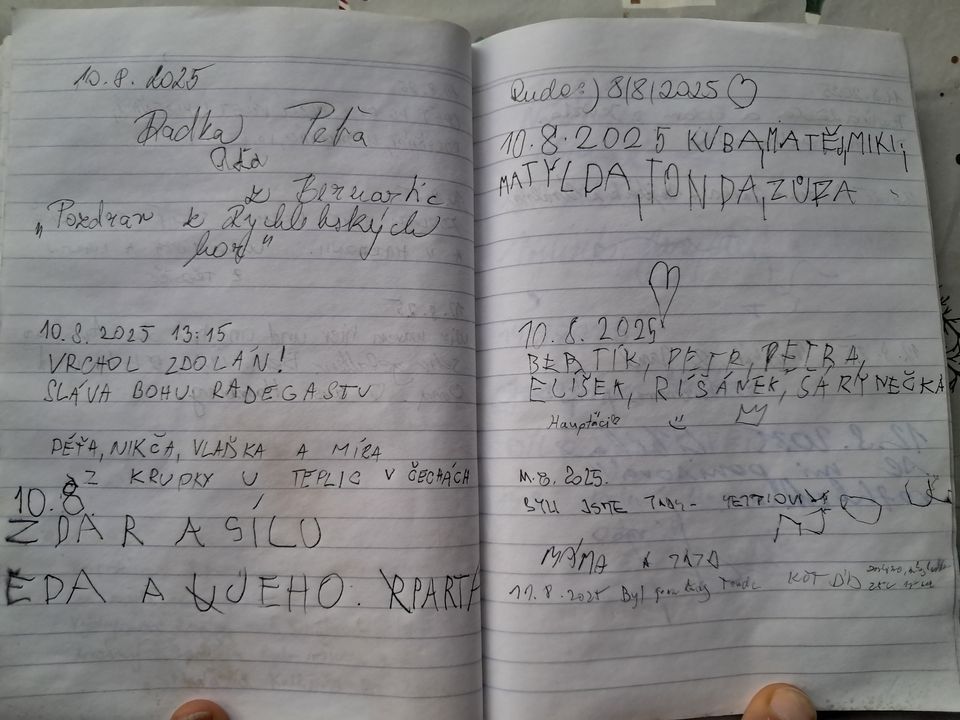 10.8.2025
Radka Petra
z Bernartic
„Pozdrav z Rychlebských
hor"
10.8.2025 13:15
VRCHOL ZDOLÁN!
SLÁVA BOHU RADEGASTU
PÉŤA, NIKČA, VLAŠKA A MÍRA
Z KRUPKY U TEPLIC V ČECHÁCH
10.8.
ZDAR A SÍLU
EDA A JEHO PARTA
Rudo:) 8/8/2025
10.8.2025 KUBA, MATĚJ, MIKI,
MATYLDA, TONDA, ZUZA
10.8.2025
BERTÍK, PETR, PETRA,
ELÍŠEK, RÍŠÁNEK, SÁRYNEČKA
11.8.2025.
BYLI JSME TADY
MÁMA A TÁTA
11.8.2025 Byl jsem tady Tonda